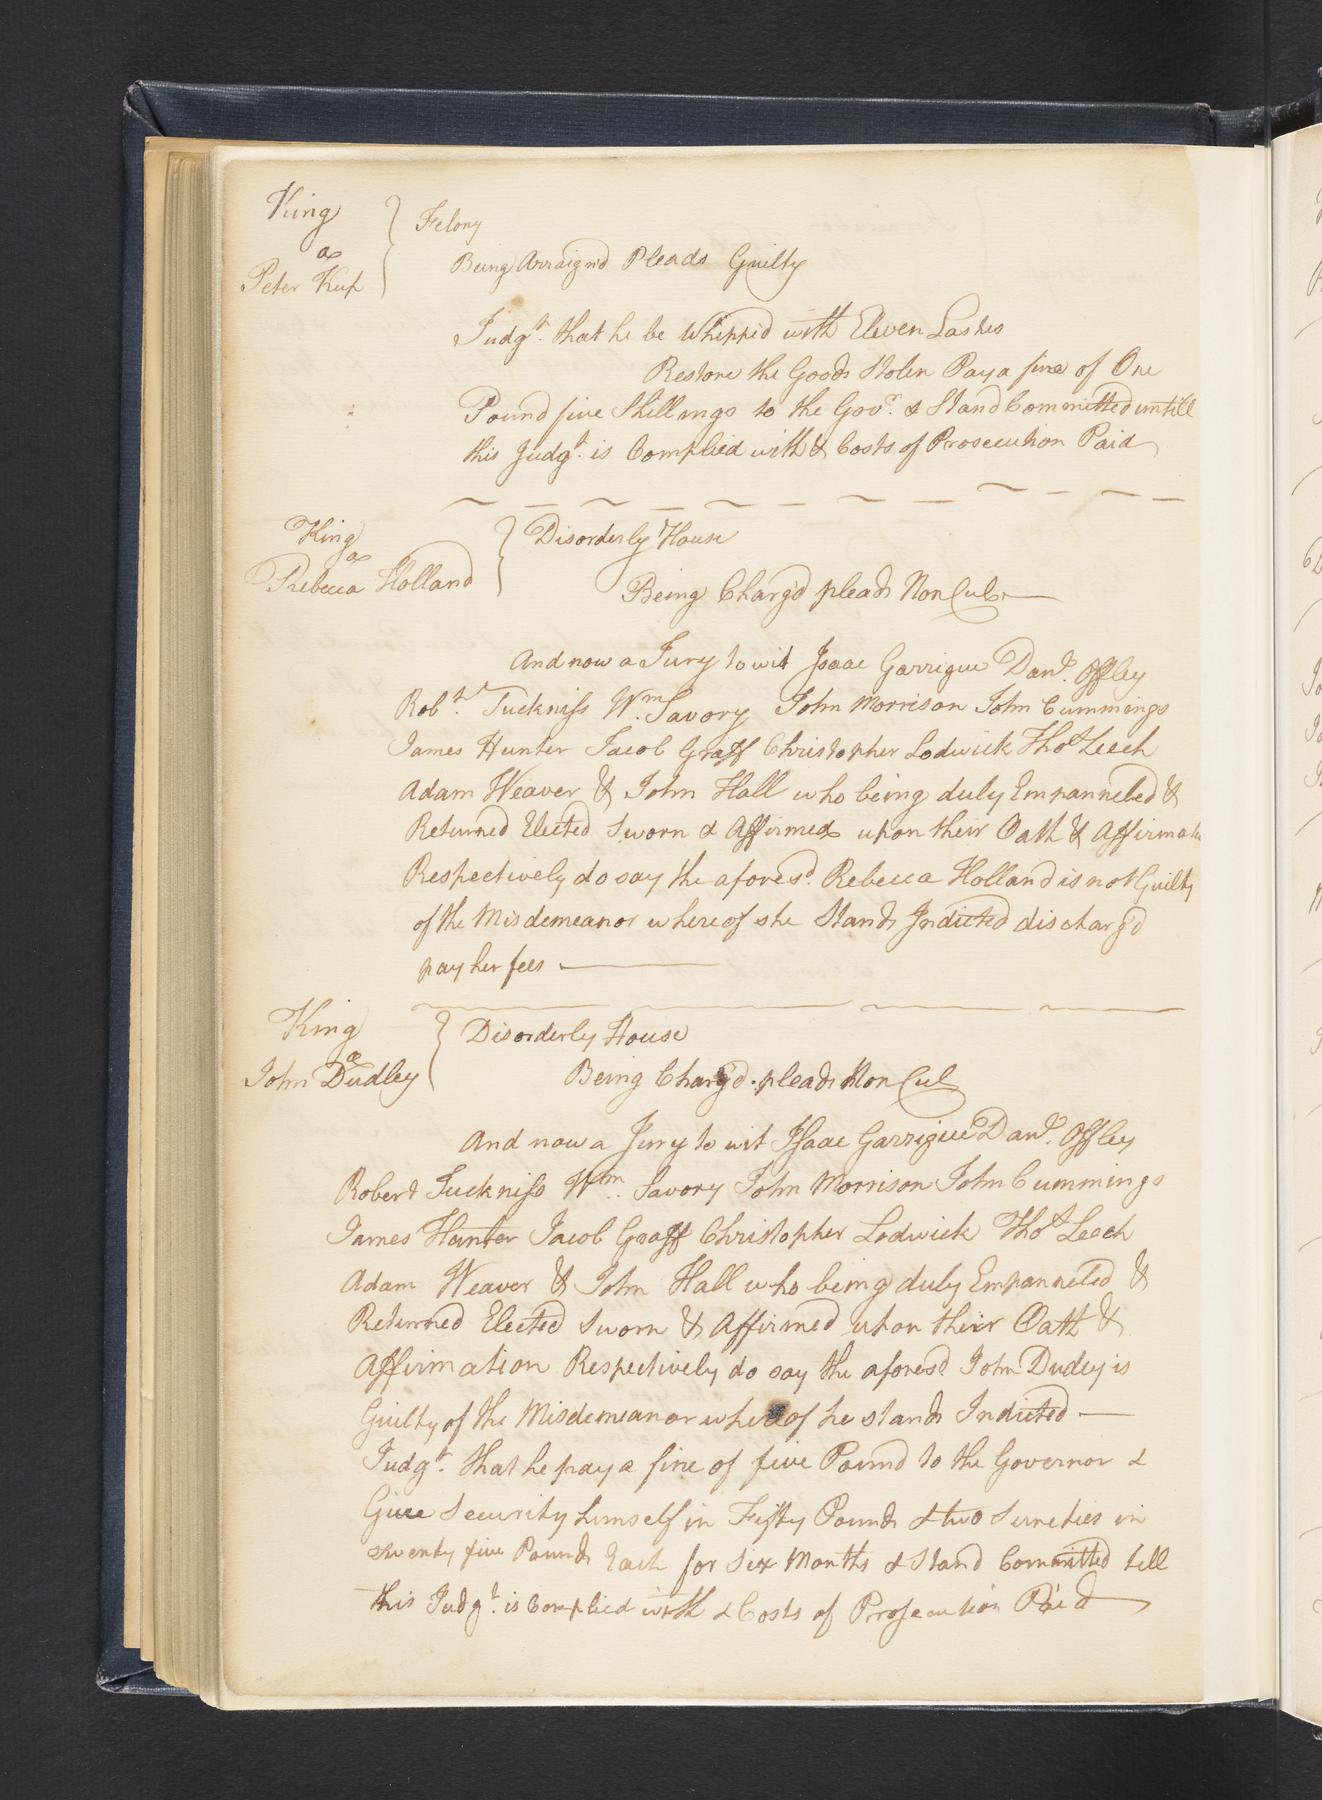 King
Felony
Being Arraignd Pleads Guilty
Peter
Judgt. that he be Whippid with Eleven Lashes
Restore the Goods Stolen Pay a fine of One
Pound five Shillings to the Govr. & Stand Committed untill
this Judgt. is Complied with & Costs of Prosecution Paid
King
Disorderly House
Rebecca Holland
Being Chargd pleads Non Cul
And now a Jury to wit Isaac Garrigue Danl. Offley
Robt. Tuckniss Wm. Savory John Morrison John Cummings
James Hunter Jacob Graff Christopher Lodwick Thos Leech
Adam Weaver & John Hall who being duly Empanneled &
Returned Elected Sworn & Affirmed upon their Oath &
Respectively do say the aforesd. Rebecca Holland is not Guilty
of the Misdemeanor whereof she Stands Indicted dischargd
pay her fees
King
Disorderly House
John Dudley
Being Chargd pleads Non Cul
And now a Jury to wit Isaac Garrigue Danl. Offley
Robert Tuckniss Wm. Savory John Morrison John Cummings
James Hunter Jacob Graff Christopher Lodwick Thos Leech
Adam Weaver & John Hall who being duly Empanneled &
Returned Elected Sworn & Affirmed upon their Oath &
Affirmation Respectively do say the aforesd John Dudley is
Guilty of the Misdemeanor whereof he stands Indicted
Judgt. that he pay a fine of five Pound to the Governor &
Give Security himself in Fifty Pounds & two Sureties in
twenty five Pounds Each for Six Months & Stand Committed till
this Judgt. is Complied with & Costs of Prosecution Paid